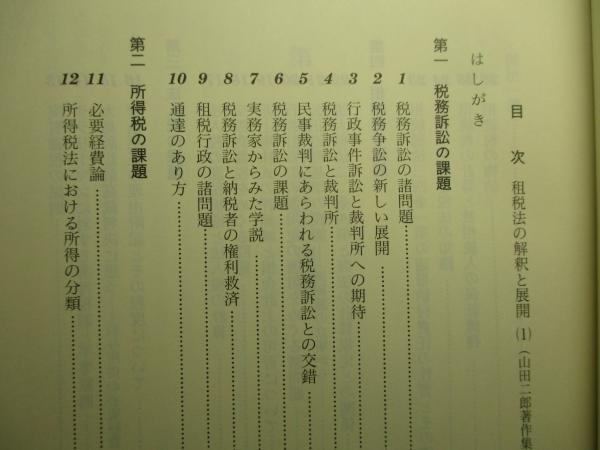 目次 租税法の解釈と展開(1)(山田二郎著作集
はしがき
第一 税務訴訟の課題
1 税務訴訟の諸問題
2 税務争訟の新しい展開
3 行政事件訴訟と裁判所への期待
4 税務訴訟と裁判所
5 民事裁判にあらわれる税務訴訟との交錯
6 税務訴訟の課題
7 実務家からみた学説
8 税務訴訟と納税者の権利救済
9 租税行政の諸問題
10 通達のあり方
第二 所得税の課題
11 必要経費論
12 所得税法における所得の分類